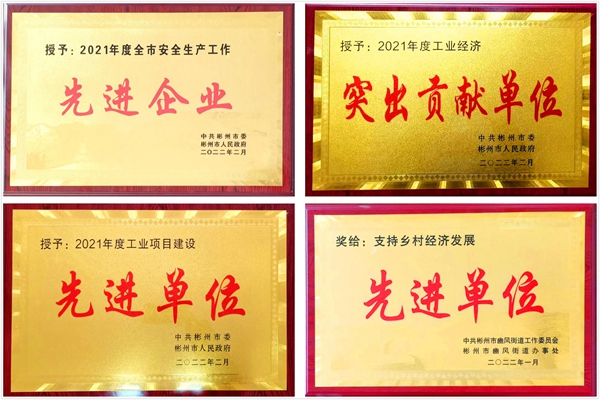 授予：2021年度全市安全生产工作
先进企业
中共彬州市委
彬州市人民政府
二〇二二年二月
授予：2021年度工业经济
突出贡献单位
中共彬州市委
彬州市人民政府
二〇二二年二月
授予：2021年度工业项目建设
先进单位
中共彬州市委
彬州市人民政府
二〇二二年二月
奖给：支持乡村经济发展
先进单位
中共彬州市豳风街道工作委员会
彬州市豳风街道办事处
二〇二二年一月